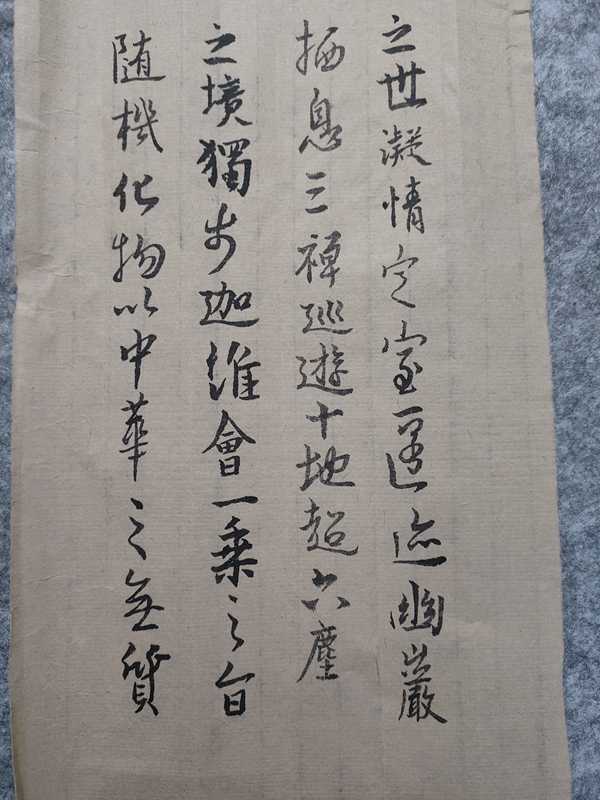 之世凝情定室匿迹幽巖
栖息三禅巡遊十地超六塵
之境獨步迦維會一乗之旨
随機化物以中華之無質